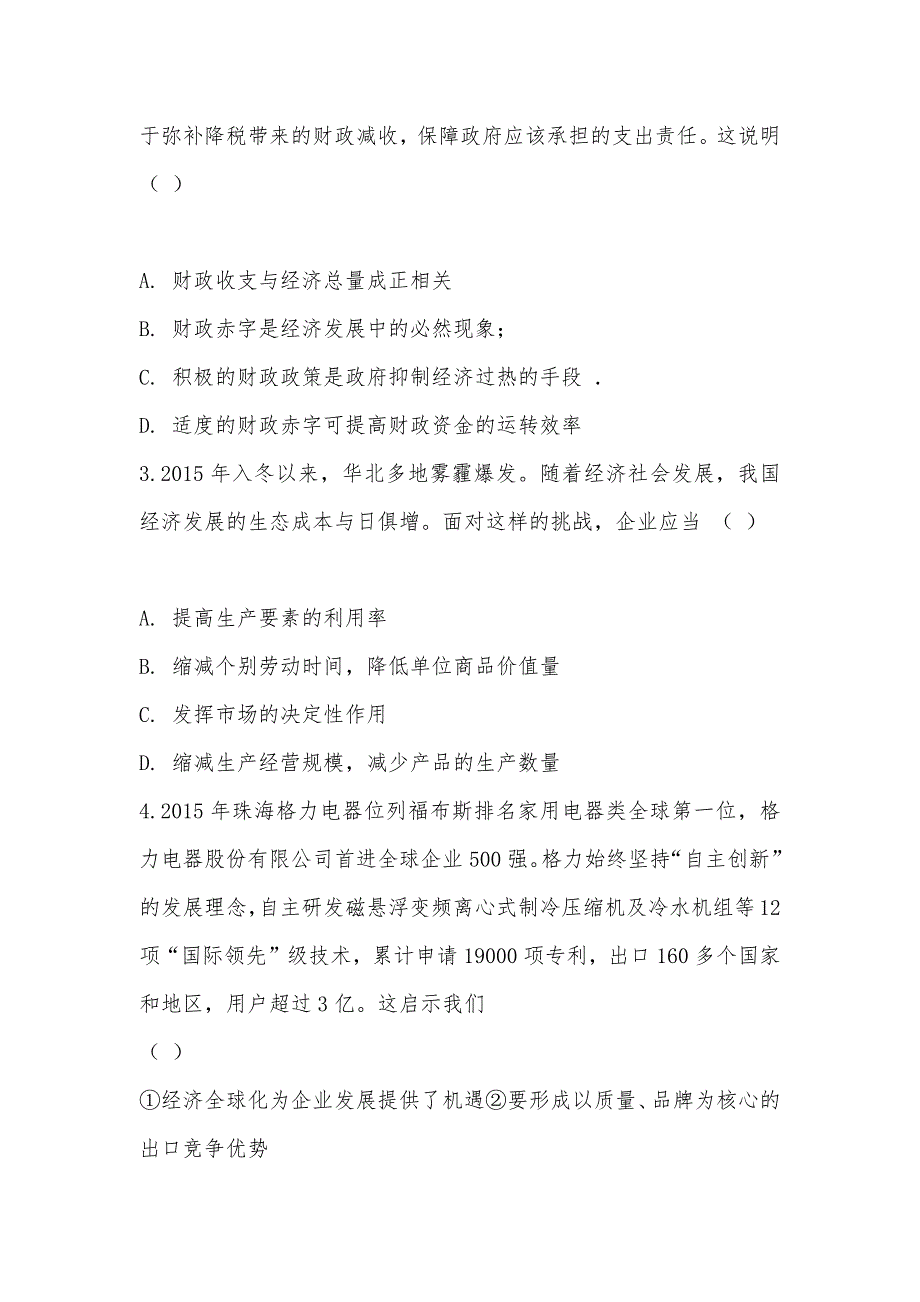 于弥补降税带来的财政减收，保障政府应该承担的支出责任。这说明
（ ）
A. 财政收支与经济总量成正相关
B. 财政赤字是经济发展中的必然现象;
C. 积极的财政政策是政府抑制经济过热的手段 .
D. 适度的财政赤字可提高财政资金的运转效率
3.2015 年入冬以来，华北多地雾霾爆发。随着经济社会发展，我国
经济发展的生态成本与日俱增。面对这样的挑战，企业应当 （ ）
A. 提高生产要素的利用率
B. 缩减个别劳动时间，降低单位商品价值量
C. 发挥市场的决定性作用
D. 缩减生产经营规模，减少产品的生产数量
4.2015 年珠海格力电器位列福布斯排名家用电器类全球第一位，格
力电器股份有限公司首进全球企业 500 强。格力始终坚持“自主创新”
的发展理念，自主研发磁悬浮变频离心式制冷压缩机及冷水机组等 12
项“国际领先”级技术，累计申请 19000 项专利，出口 160 多个国家
和地区，用户超过 3 亿。这启示我们
（ ）
①经济全球化为企业发展提供了机遇②要形成以质量、品牌为核心的
出口竞争优势